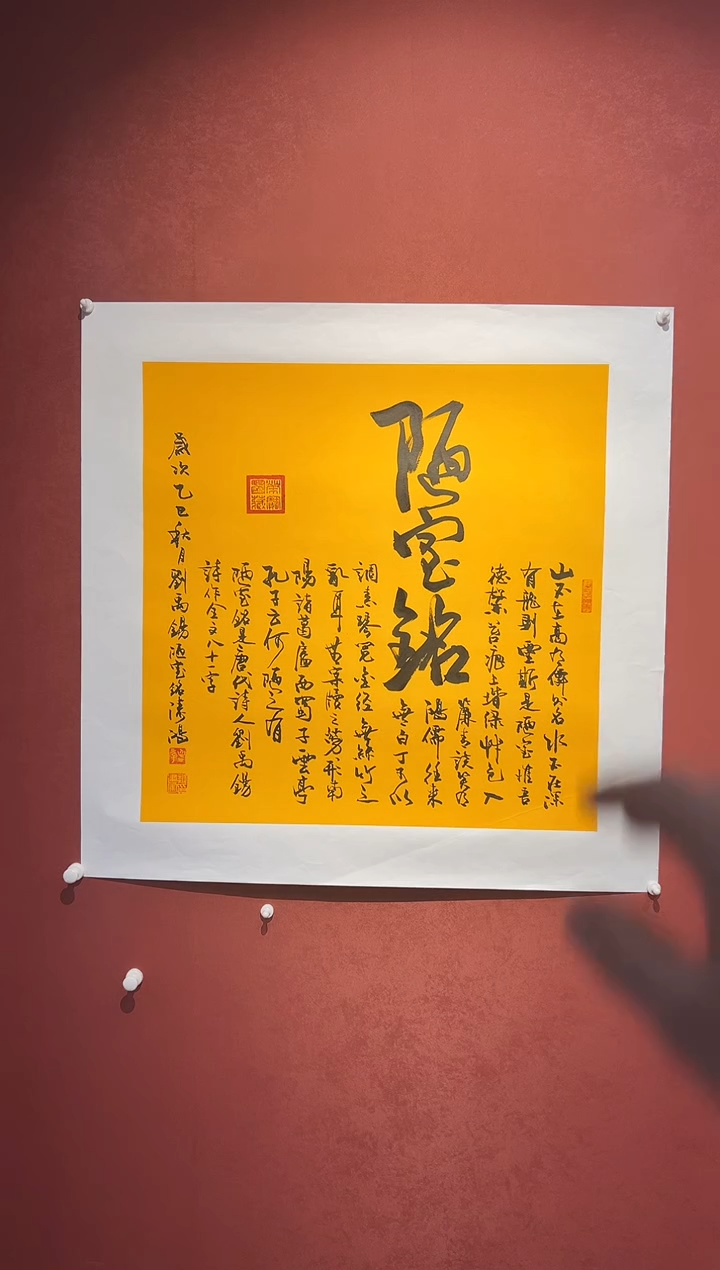 陋室銘
山不在高有僊則名水不在深
有龍則靈斯是陋室惟吾
德馨苔痕上堦綠艸色入
簾青談笑有
鴻儒往來
無白丁可以
調素琴閱金經無絲竹之
亂耳無案牘之勞形南
陽諸葛廬西蜀子雲亭
孔子云何陋之有
陋室銘是唐代詩人劉禹錫
詩作全文八十字
歲次乙巳秋月劉禹錫陋室銘